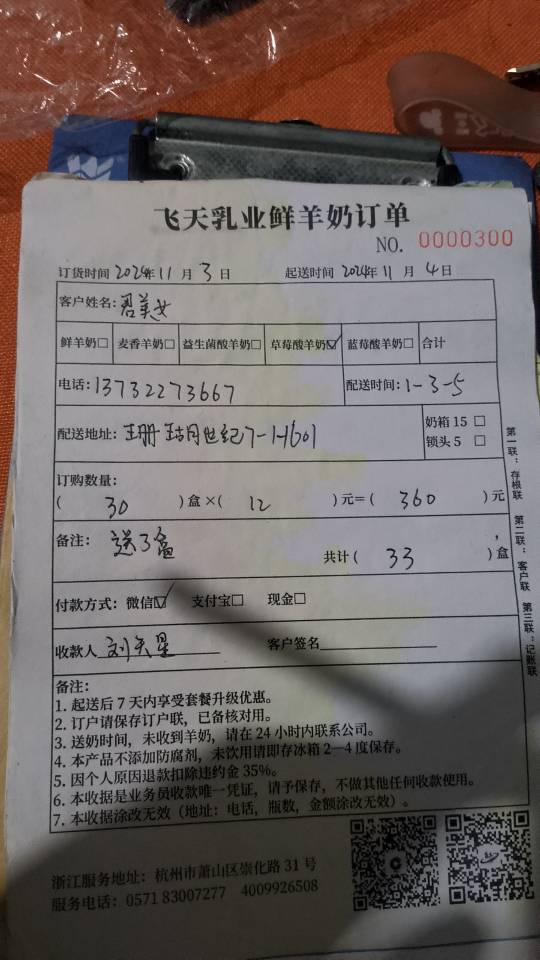 飞天乳业鲜羊奶订单
NO. 0000300
订货时间 2024年11月3日 起送时间 2024年11月4日
客户姓名:君美女
鲜羊奶□ 麦香羊奶□ 益生菌酸羊奶□ 草莓酸羊奶☑ 蓝莓酸羊奶□ 合计
电话:13732273667 配送时间:1-3-5
配送地址: 世纪7-1-1601
奶箱 15 □
锁头 5 □
订购数量:
( 30 )盒×( 12 )元=( 360 )元
备注: 送3盒
共计( 33 )盒
付款方式: 微信☑ 支付宝□ 现金□
收款人 刘天星 客户签名
备注:
1. 起送后 7 天内享受套餐升级优惠。
2. 订户请保存订户联,已备核对用。
3. 送奶时间,未收到羊奶,请在 24 小时内联系公司。
4. 本产品不添加防腐剂,未饮用请即存冰箱 2—4 度保存。
5. 因个人原因退款扣除违约金 35%。
6. 本收据是业务员收款唯一凭证,请予保存,不做其他任何收款使用。
7. 本收据涂改无效(地址:电话,瓶数,金额涂改无效)。
浙江服务地址:杭州市萧山区崇化路 31 号
服务电话:0571 83007277 4009926508
第一联:存根联 第二联:客户联 第三联:记账联